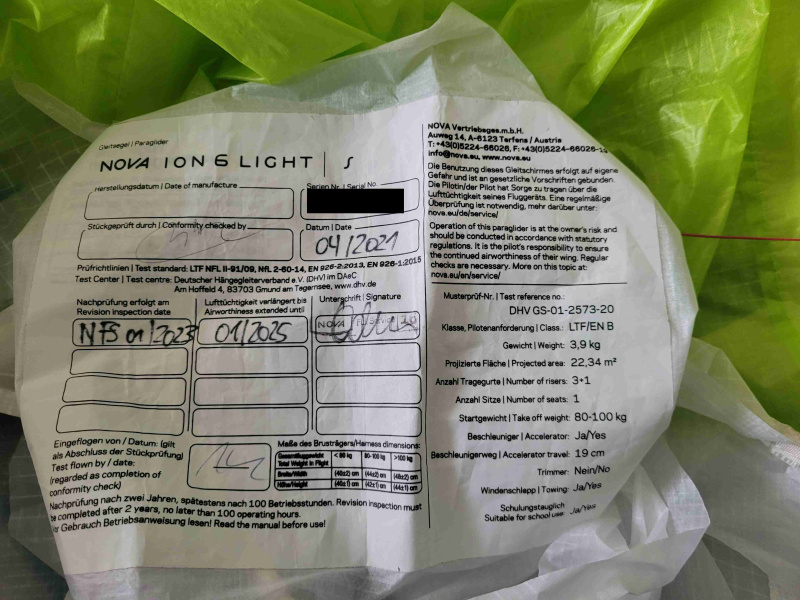 Gleitsegel | Paraglider
NOVA ION 6 LIGHT | S
Herstellungsdatum | Date of manufacture
Serien Nr. | Serial No.
Stückgeprüft durch | Conformity checked by
Datum | Date
04/2021
Prüfrichtlinien | Test standard: LTF NFL II-91/09, NfL 2-60-14, EN 926-2:2013, EN 926-1:2015
Test Center | Test centre: Deutscher Hängegleiterverband e.V. (DHV) im DAeC
Am Hoffeld 4, 83703 Gmund am Tegernsee, www.dhv.de
Nachprüfung erfolgt am
Revision inspection date
Lufttüchtigkeit verlängert bis
Airworthiness extended until
Unterschrift | Signature
NFS 01/2023
01/2025
NOVA
Eingeflogen von / Datum: (gilt
als Abschluss der Stückprüfung)
Test flown by / date:
(regarded as completion of
conformity check)
Maße des Brustträgers/Harness dimensions:
Gesamtfluggewicht
Total Weight in Flight
< 80 kg
80-100 kg
>100 kg
Breite/Width
(40±2) cm
(44±2) cm
(48±2) cm
Höhe/Height
(40±1) cm
(42±1) cm
(44±1) cm
Nachprüfung nach zwei Jahren, spätestens nach 100 Betriebsstunden. Revision inspection must
be completed after 2 years, no later than 100 operating hours.
Gebrauch Betriebsanweisung lesen! Read the manual before use!
NOVA Vertriebsges.m.b.H.
Auweg 14, A-6123 Terfens / Austria
T: +43(0)5224-66026, F: +43(0)5224-66026-
info@nova.eu, www.nova.eu
Die Benutzung dieses Gleitschirmes erfolgt auf eigene
Gefahr und ist an gesetzliche Vorschriften gebunden.
Die Pilotin/der Pilot hat Sorge zu tragen über die
Lufttüchtigkeit seines Fluggeräts. Eine regelmäßige
Überprüfung ist notwendig, mehr darüber unter:
nova.eu/de/service/
Operation of this paraglider is at the owner's risk and
should be conducted in accordance with statutory
regulations. It is the pilot's responsibility to ensure
the continued airworthiness of their wing. Regular
checks are necessary. More on this topic at:
nova.eu/en/service/
Musterprüf-Nr. | Test reference no.:
DHV GS-01-2573-20
Klasse, Pilotenanforderung | Class.: LTF/EN B
Gewicht | Weight: 3,9 kg
Projizierte Fläche | Projected area: 22,34 m²
Anzahl Tragegurte | Number of risers: 3+1
Anzahl Sitze | Number of seats: 1
Startgewicht | Take off weight: 80-100 kg
Beschleuniger | Accelerator: Ja/Yes
Beschleunigerweg | Accelerator travel: 19 cm
Trimmer: Nein/No
Windenschlepp | Towing: Ja/Yes
Schulungstauglich
Suitable for school use: Ja/Yes